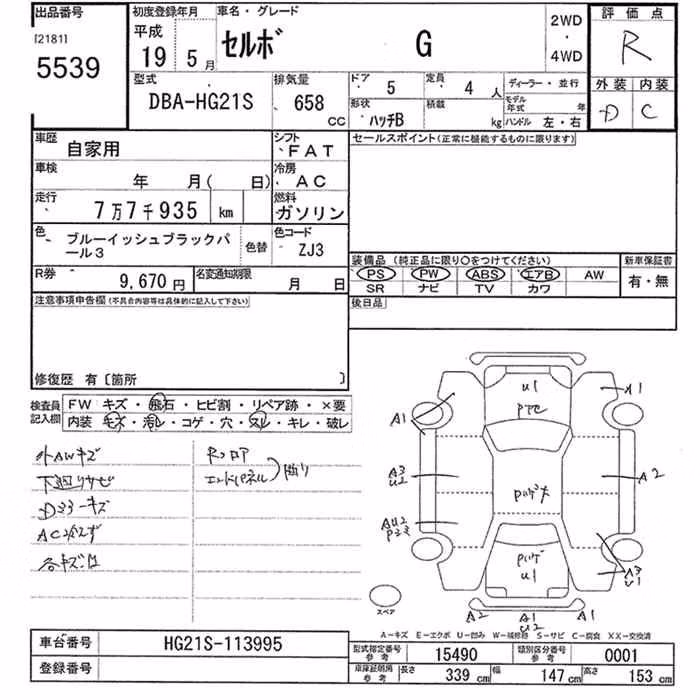 出品番号
[2181]
5539
初度登録年月
平成
19 5月
車名・グレード
セルボ G
2WD
・
4WD
評価点
R
外装 内装
D C
型式
DBA-HG21S
排気量
658
CC
ドア 5
定員 4 人
形状 ハッチB
積載 kg
ディーラー・並行
モデル年式 年
ハンドル 左・右
車歴
自家用
シフト
FAT
車検
年 月( 日)
冷房
AC
走行
7万7千935 km
燃料
ガソリン
色
ブルーイッシュブラックパール3
色替
色コード
ZJ3
R券
9,670円
名変通知期限
月 日
セールスポイント(正常に機能するものに限ります)
装備品(純正品に限り○をつけてください)
PS PW ABS エアB AW
SR ナビ TV カワ
新車保証書
有・無
後日品
注意事項申告欄(不具合内容等は具体的に記入して下さい)
修復歴 有〔箇所 〕
検査員記入欄
FW キズ・飛石・ヒビ割・リペア跡・×要
内装 キズ・汚レ・コゲ・穴・スレ・キレ・破レ
外AWキズ
下廻りサビ
AC冷えず
Rフロア
エンドパネル
U1
A1
A1
A3
U2
A2
A3
U1
U1
A2
A1
U2
A1
スペア
A-キズ E-エクボ U-凹み W-補修跡 S-サビ C-腐食 XX-交換済
車台番号
HG21S-113995
登録番号
型式指定番号
参考
15490
類別区分番号
参考
0001
車庫証明用
参考
長さ 339 cm
幅 147 cm
高さ 153 cm